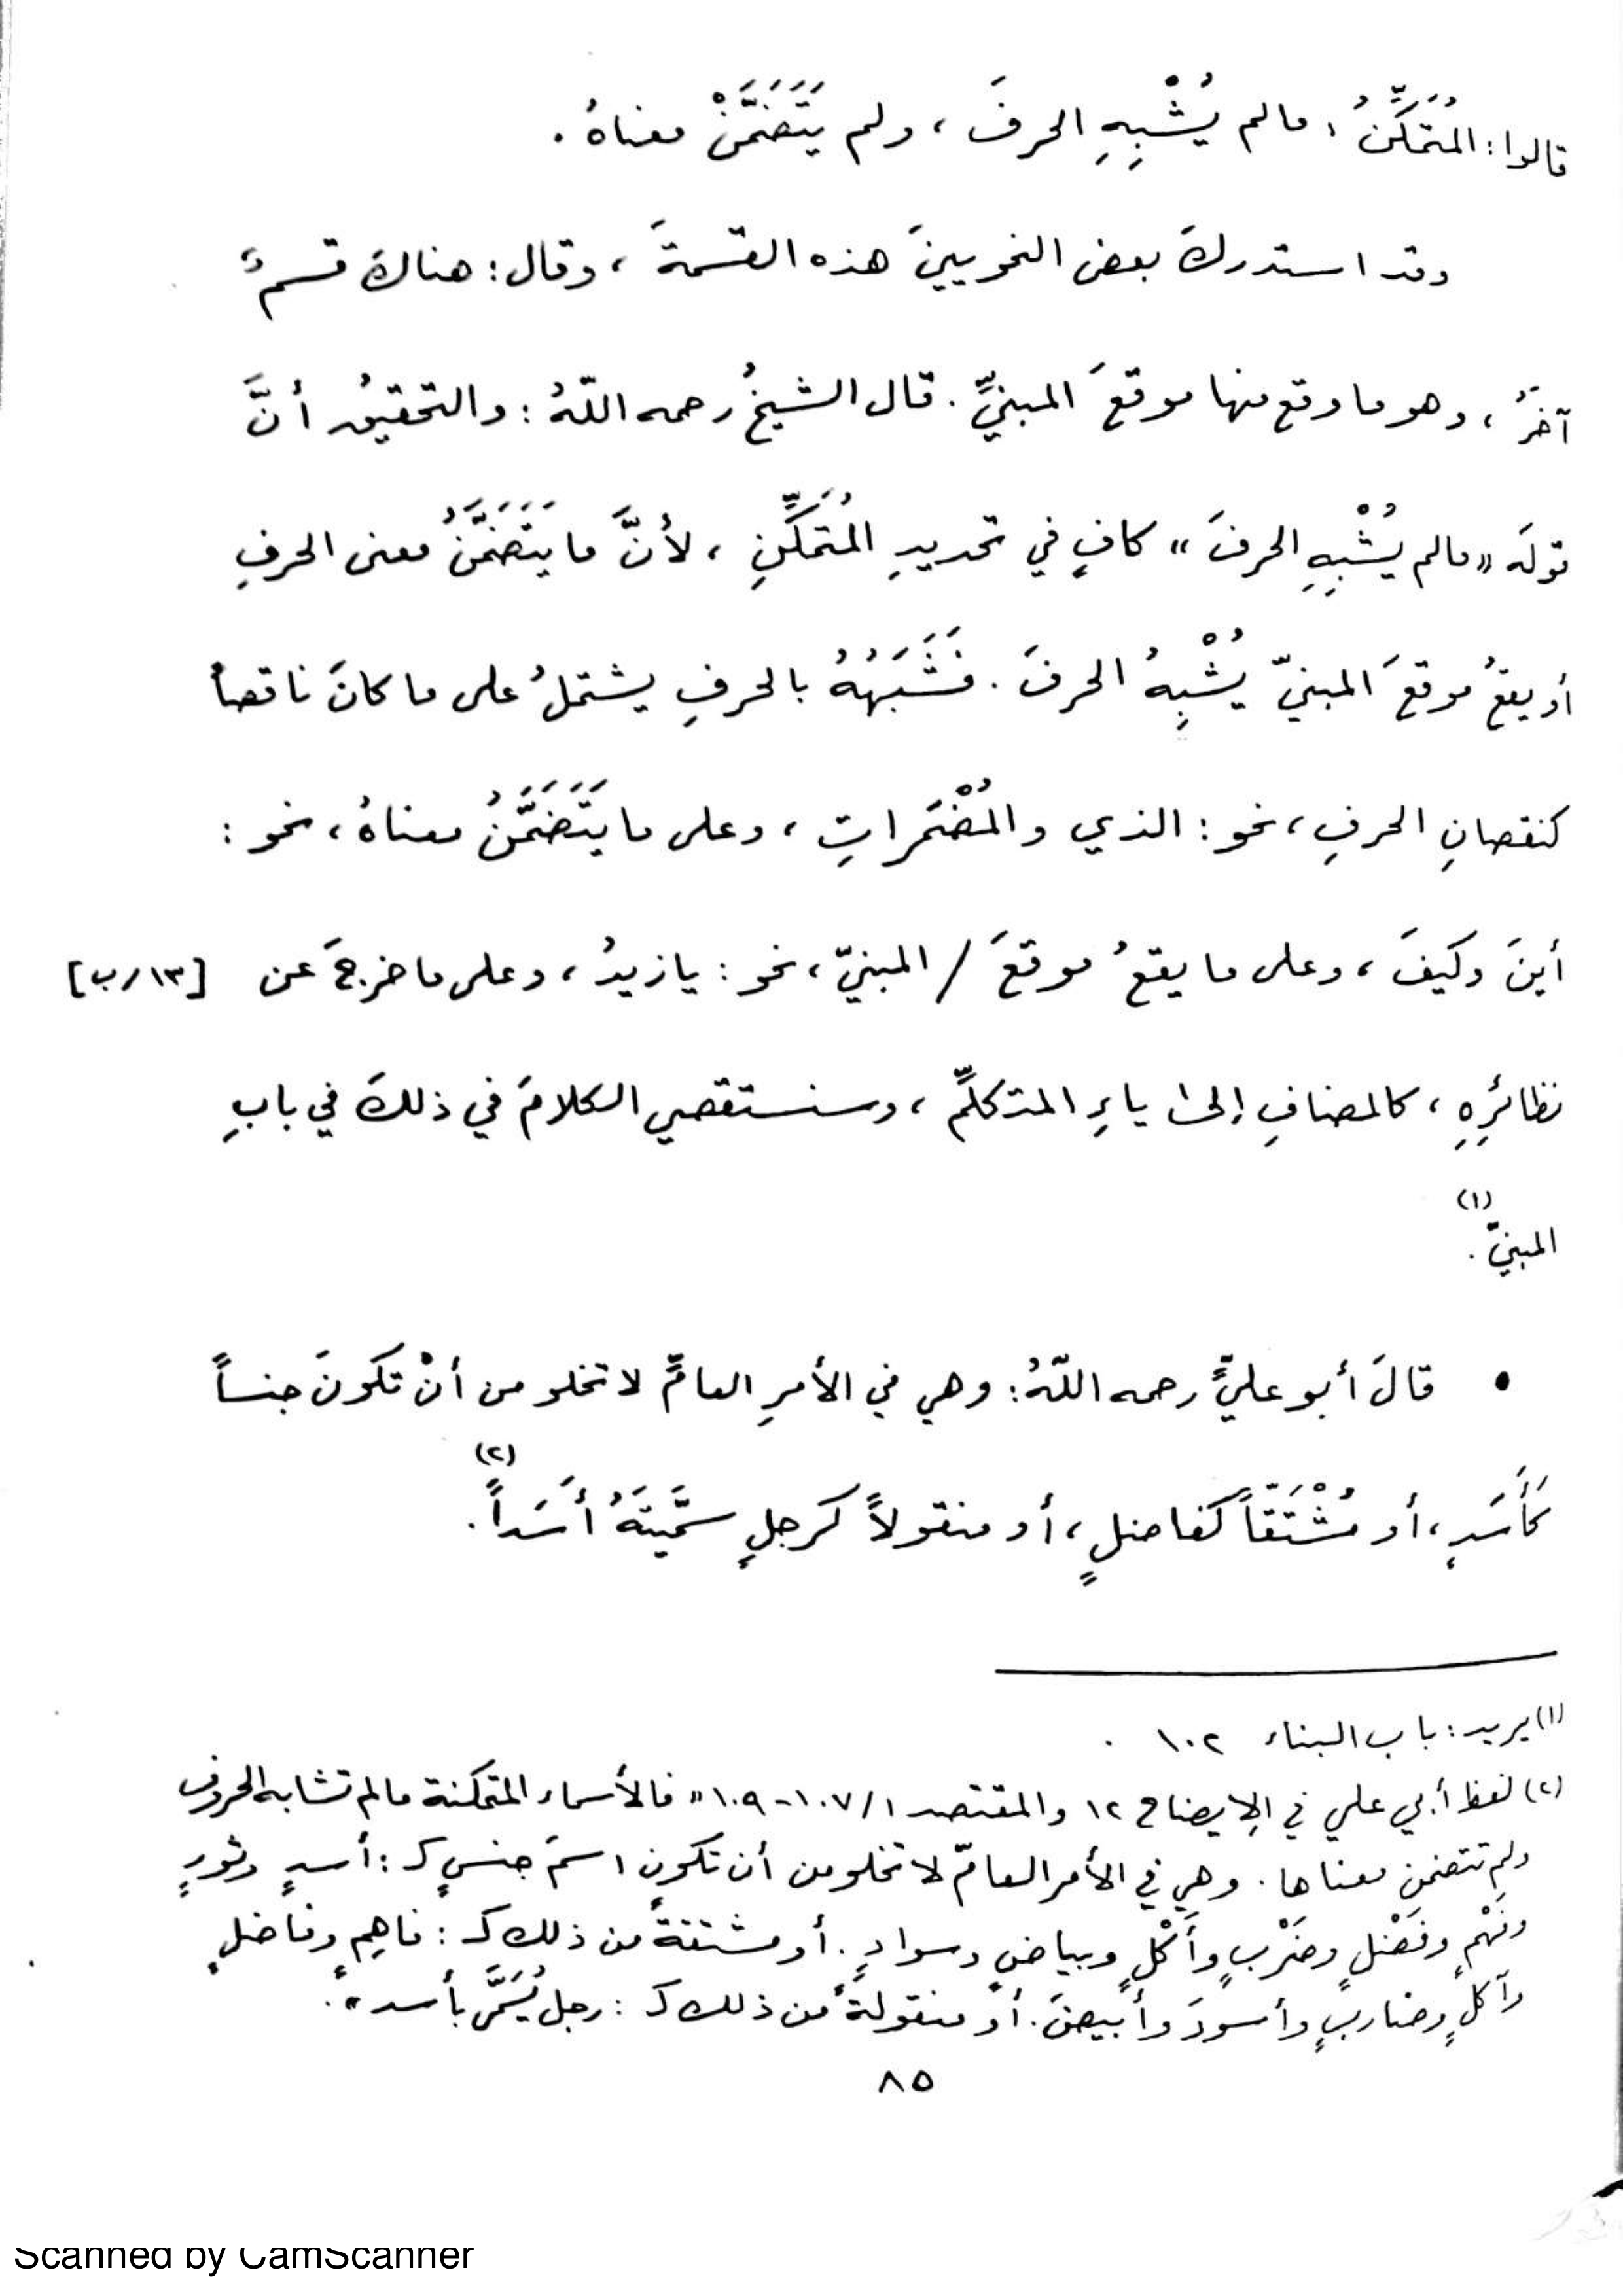 قالوا: المُتَمَكِّنُ: ما لم يُشْبِهِ الحرفَ، ولم يَتَضَمَّنْ معناهُ.
وقد استدركَ بعض النحويينَ هذه القسمةَ، وقال: هناكَ قسمٌ
آخرُ، وهو ما وقع منها موقعَ المبنيِّ. قال الشيخُ رحمه اللّهُ: والتحقيقُ أنَّ
قولَه «ما لم يُشْبِهِ الحرفَ» كافٍ في تحديدِ المُتَمَكِّنِ، لأنَّ ما يَتَضَمَّنُ معنى الحرفِ
أو يقعُ موقعَ المبنيّ يُشْبِهُ الحرفَ. فَشَبَهُهُ بالحرفِ يشتملُ على ما كانَ ناقصاً
كنقصانِ الحرفِ، نحو: الذي والمُضْمَراتِ، وعلى ما يَتَضَمَّنُ معناهُ، نحو:
أينَ وكيفَ، وعلى ما يقعُ موقعَ / المبنيّ، نحو: يا زيدُ، وعلى ما خرجَ عن [١٣/ب]
نظائرِهِ، كالمضافِ إلى ياءِ المتكلِّمِ، وسنستقصي الكلامَ في ذلكَ في بابِ
المبنيّ(١).
• قالَ أبو عليٍّ رحمه اللّهُ: وهي في الأمرِ العامِّ لا تخلو من أنْ تكونَ جنساً
كَأَسَدٍ، أو مُشْتَقّاً كفاضلٍ، أو منقولاً كرجلٍ سمَّيتَهُ أَسَداً(٢).
(١) يريد: باب البناء ١٠٢.
(٢) لفظ أبي علي في الإيضاح ١٢ والمقتصد ١/ ١٠٧-١٠٩ «فالأسماء المتمكنة ما لم تشابه الحروف
ولم تتضمن معناها. وهي في الأمر العامّ لا تخلو من أن تكون اسمَ جنسٍ كـ: أسدٍ وثورٍ
وفَهْمٍ وفَضْلٍ وضَرْبٍ وأَكْلٍ وبياضٍ وسوادٍ. أو مشتقةً من ذلك كـ: فاهِمٍ وفاضلٍ
وآكلٍ وضاربٍ وأسودَ وأبيضَ. أو منقولةً من ذلك كـ: رجل يُسَمَّى بأسد».
٨٥
Scanned by CamScanner